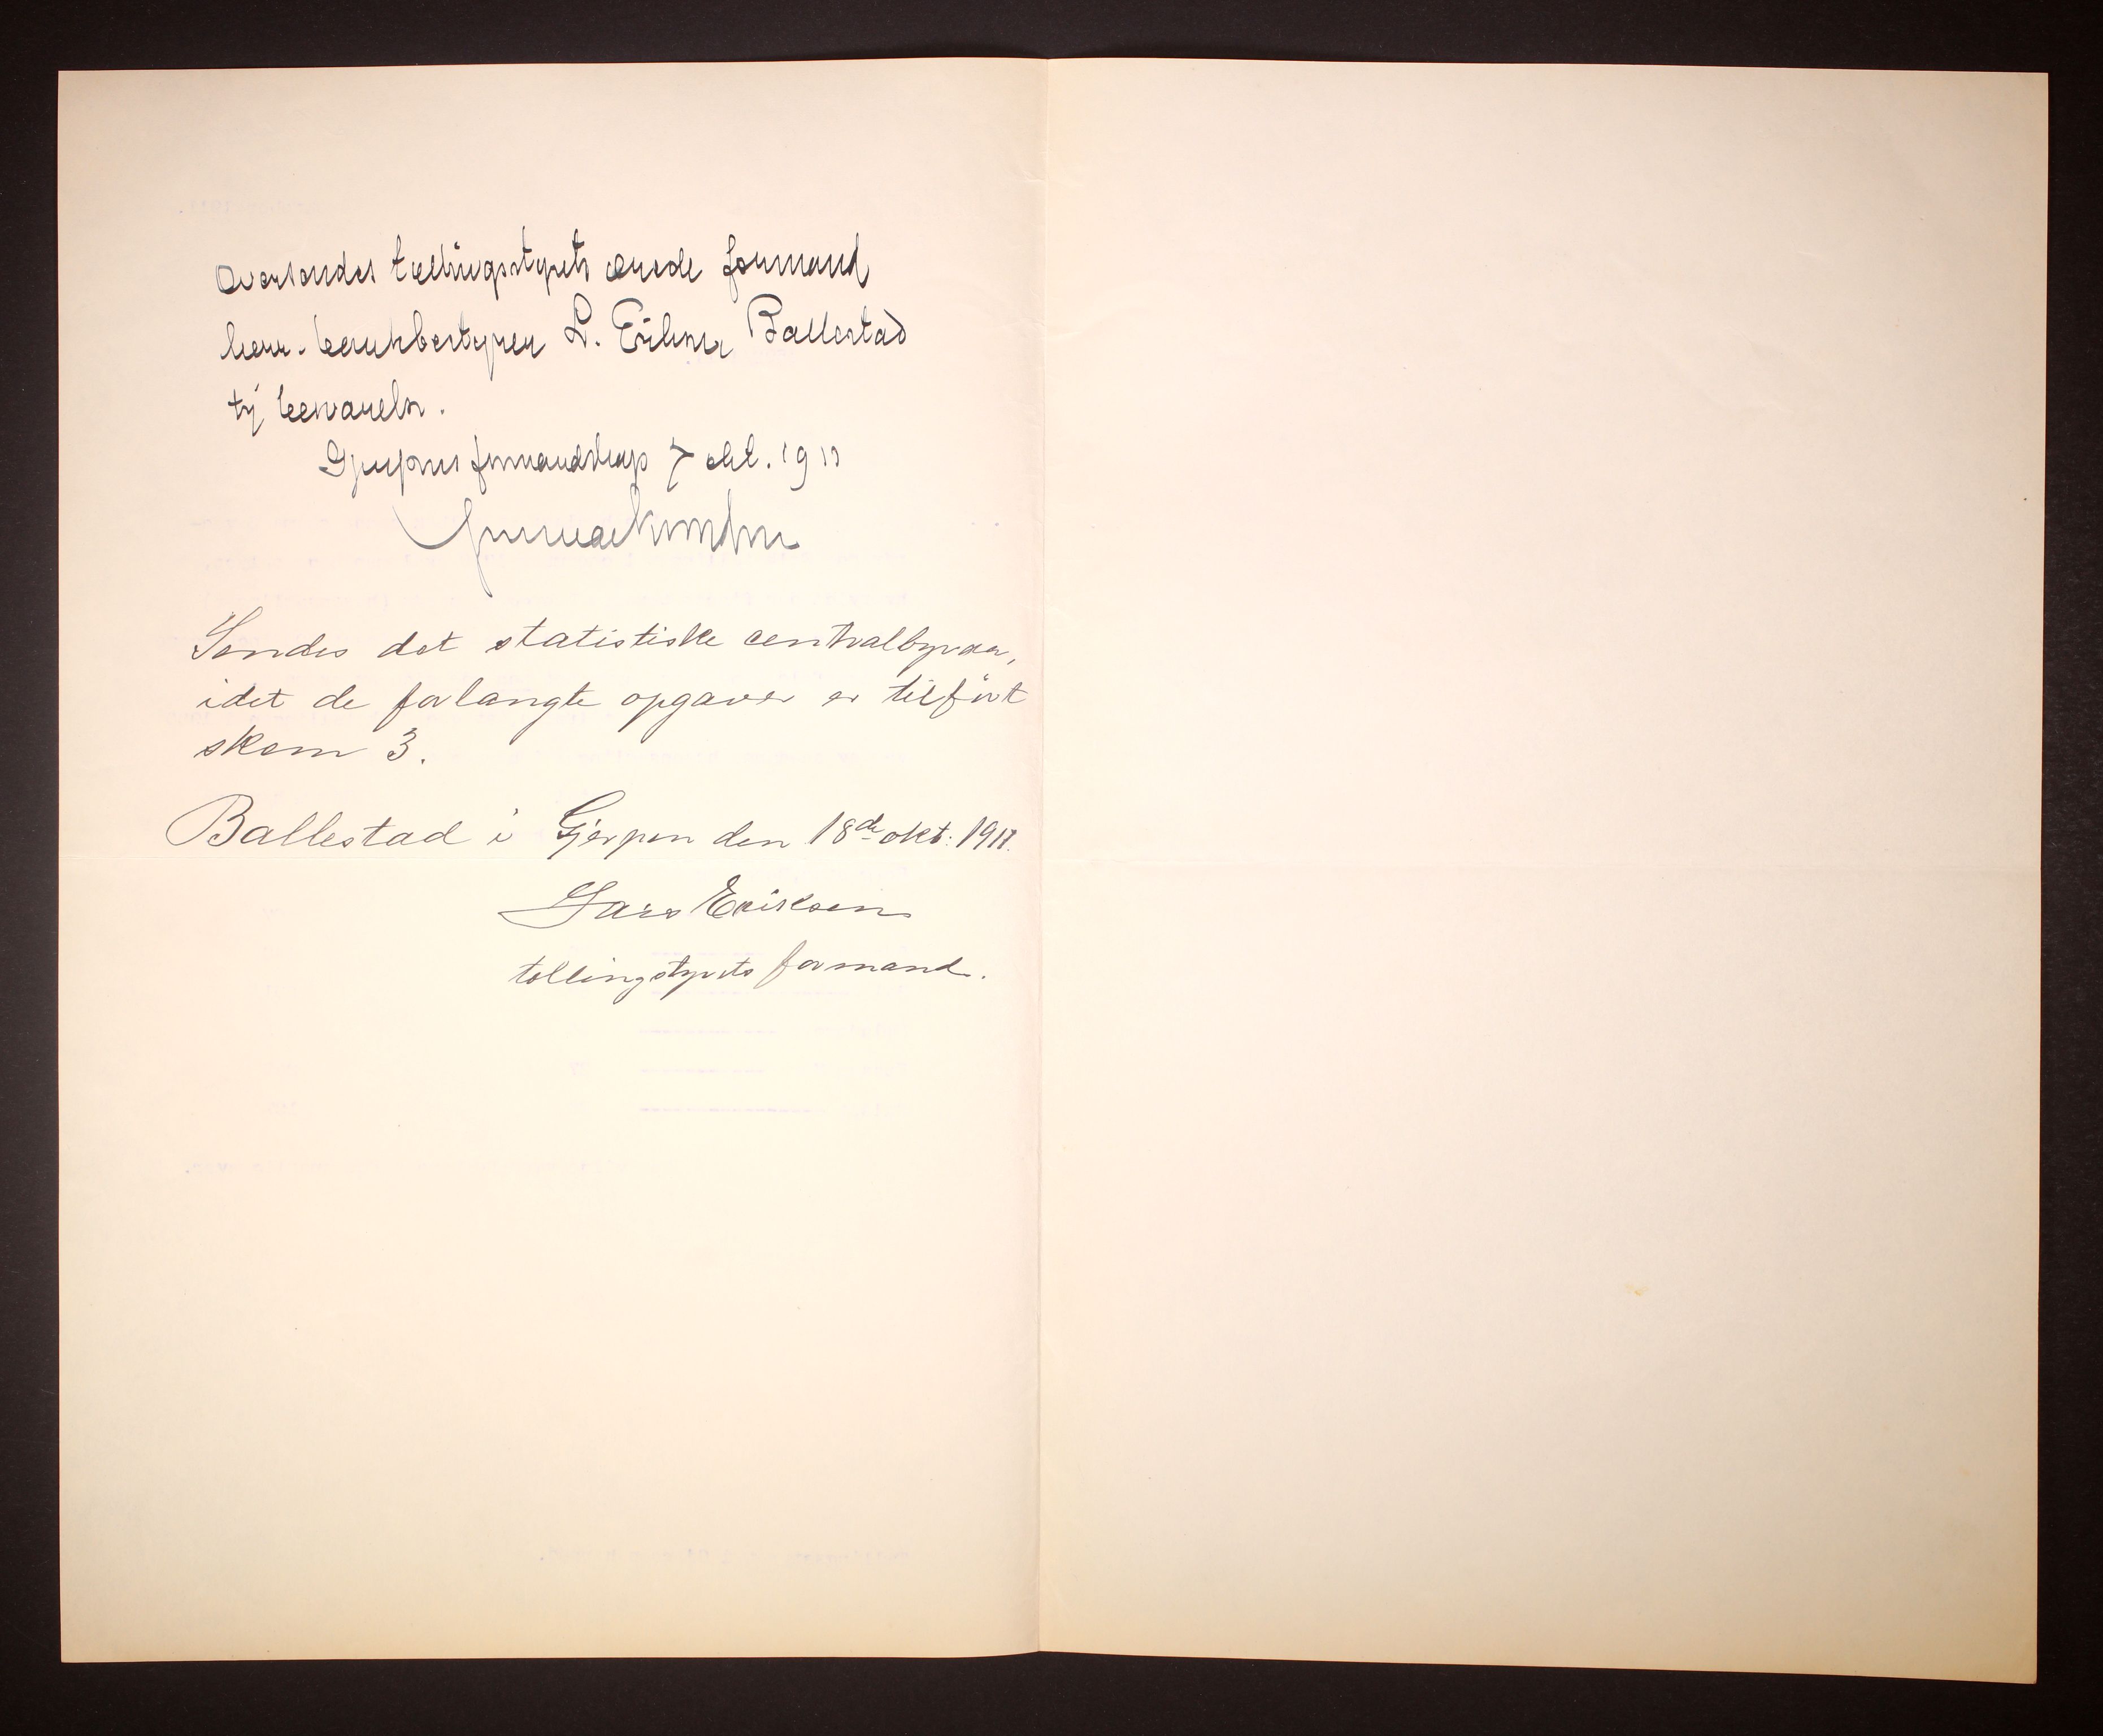 Oversendes tællingsstyrets ærede formand
herr. bankbestyrer L. Eriksen Ballestad
til besvarelse.
Gjerpens formandskap 7 okt. 1911
Sendes det statistiske centralbyraa,
idet de forlangte opgaver er tilført
skem 3.
Ballestad i Gjerpen den 18de okt. 1911.
Lars Eriksen
tellingstyrets formand.